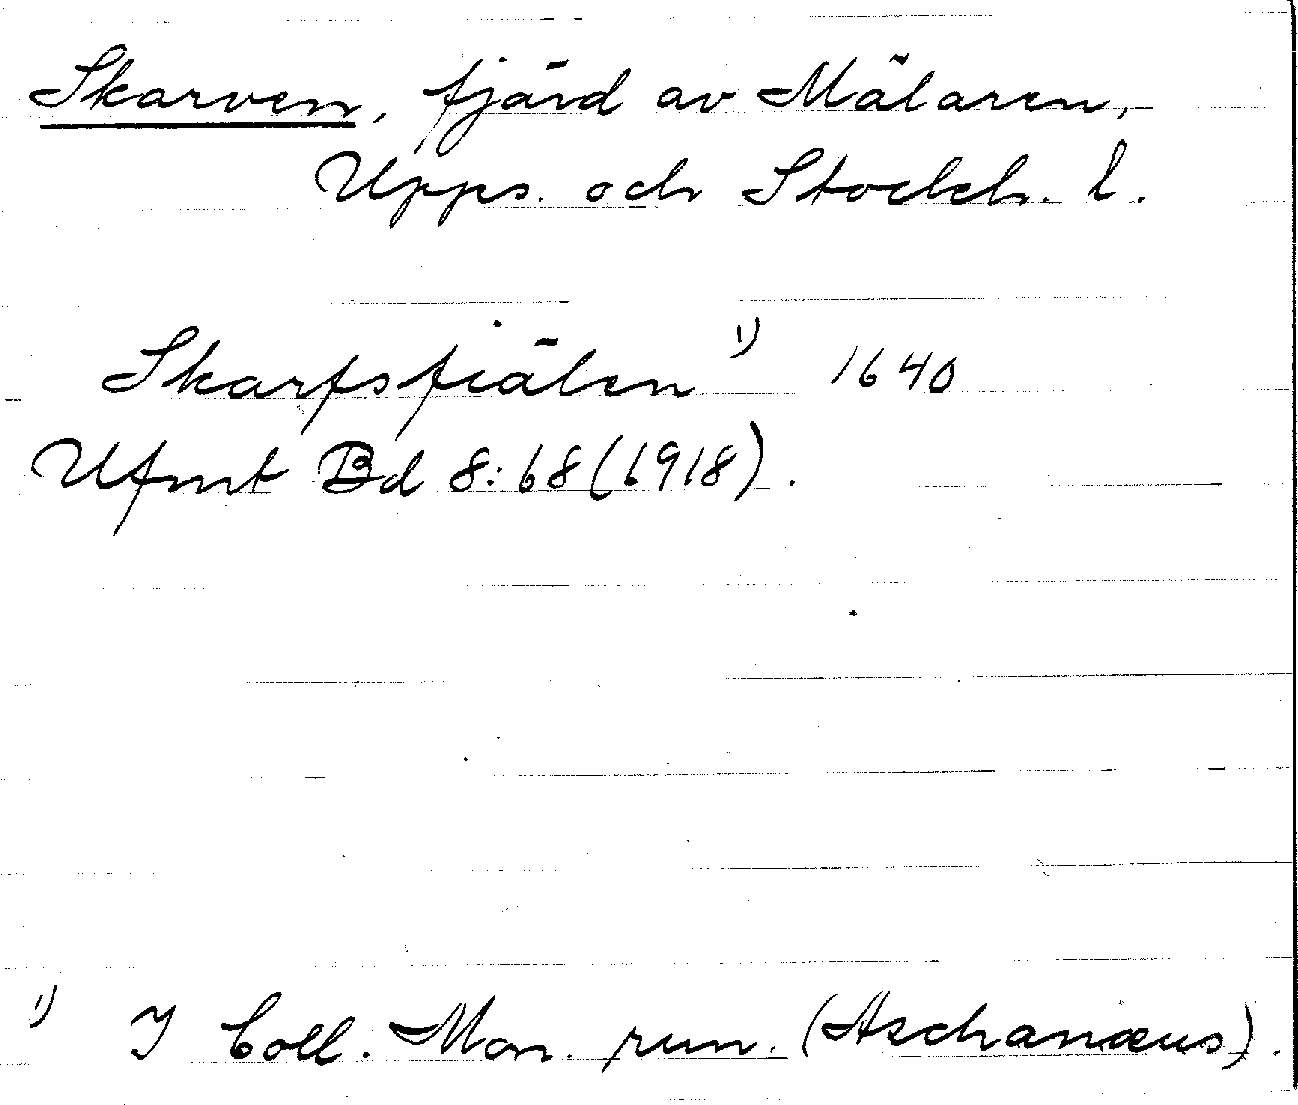 Skarven, fjärd av Mälaren,
Upps. och Stockh. l.
Skarfsfiälen 1) 1640
Ufmt Bd 8:68 (1918).
1) I Coll. Mon. run. (Aschanæus).